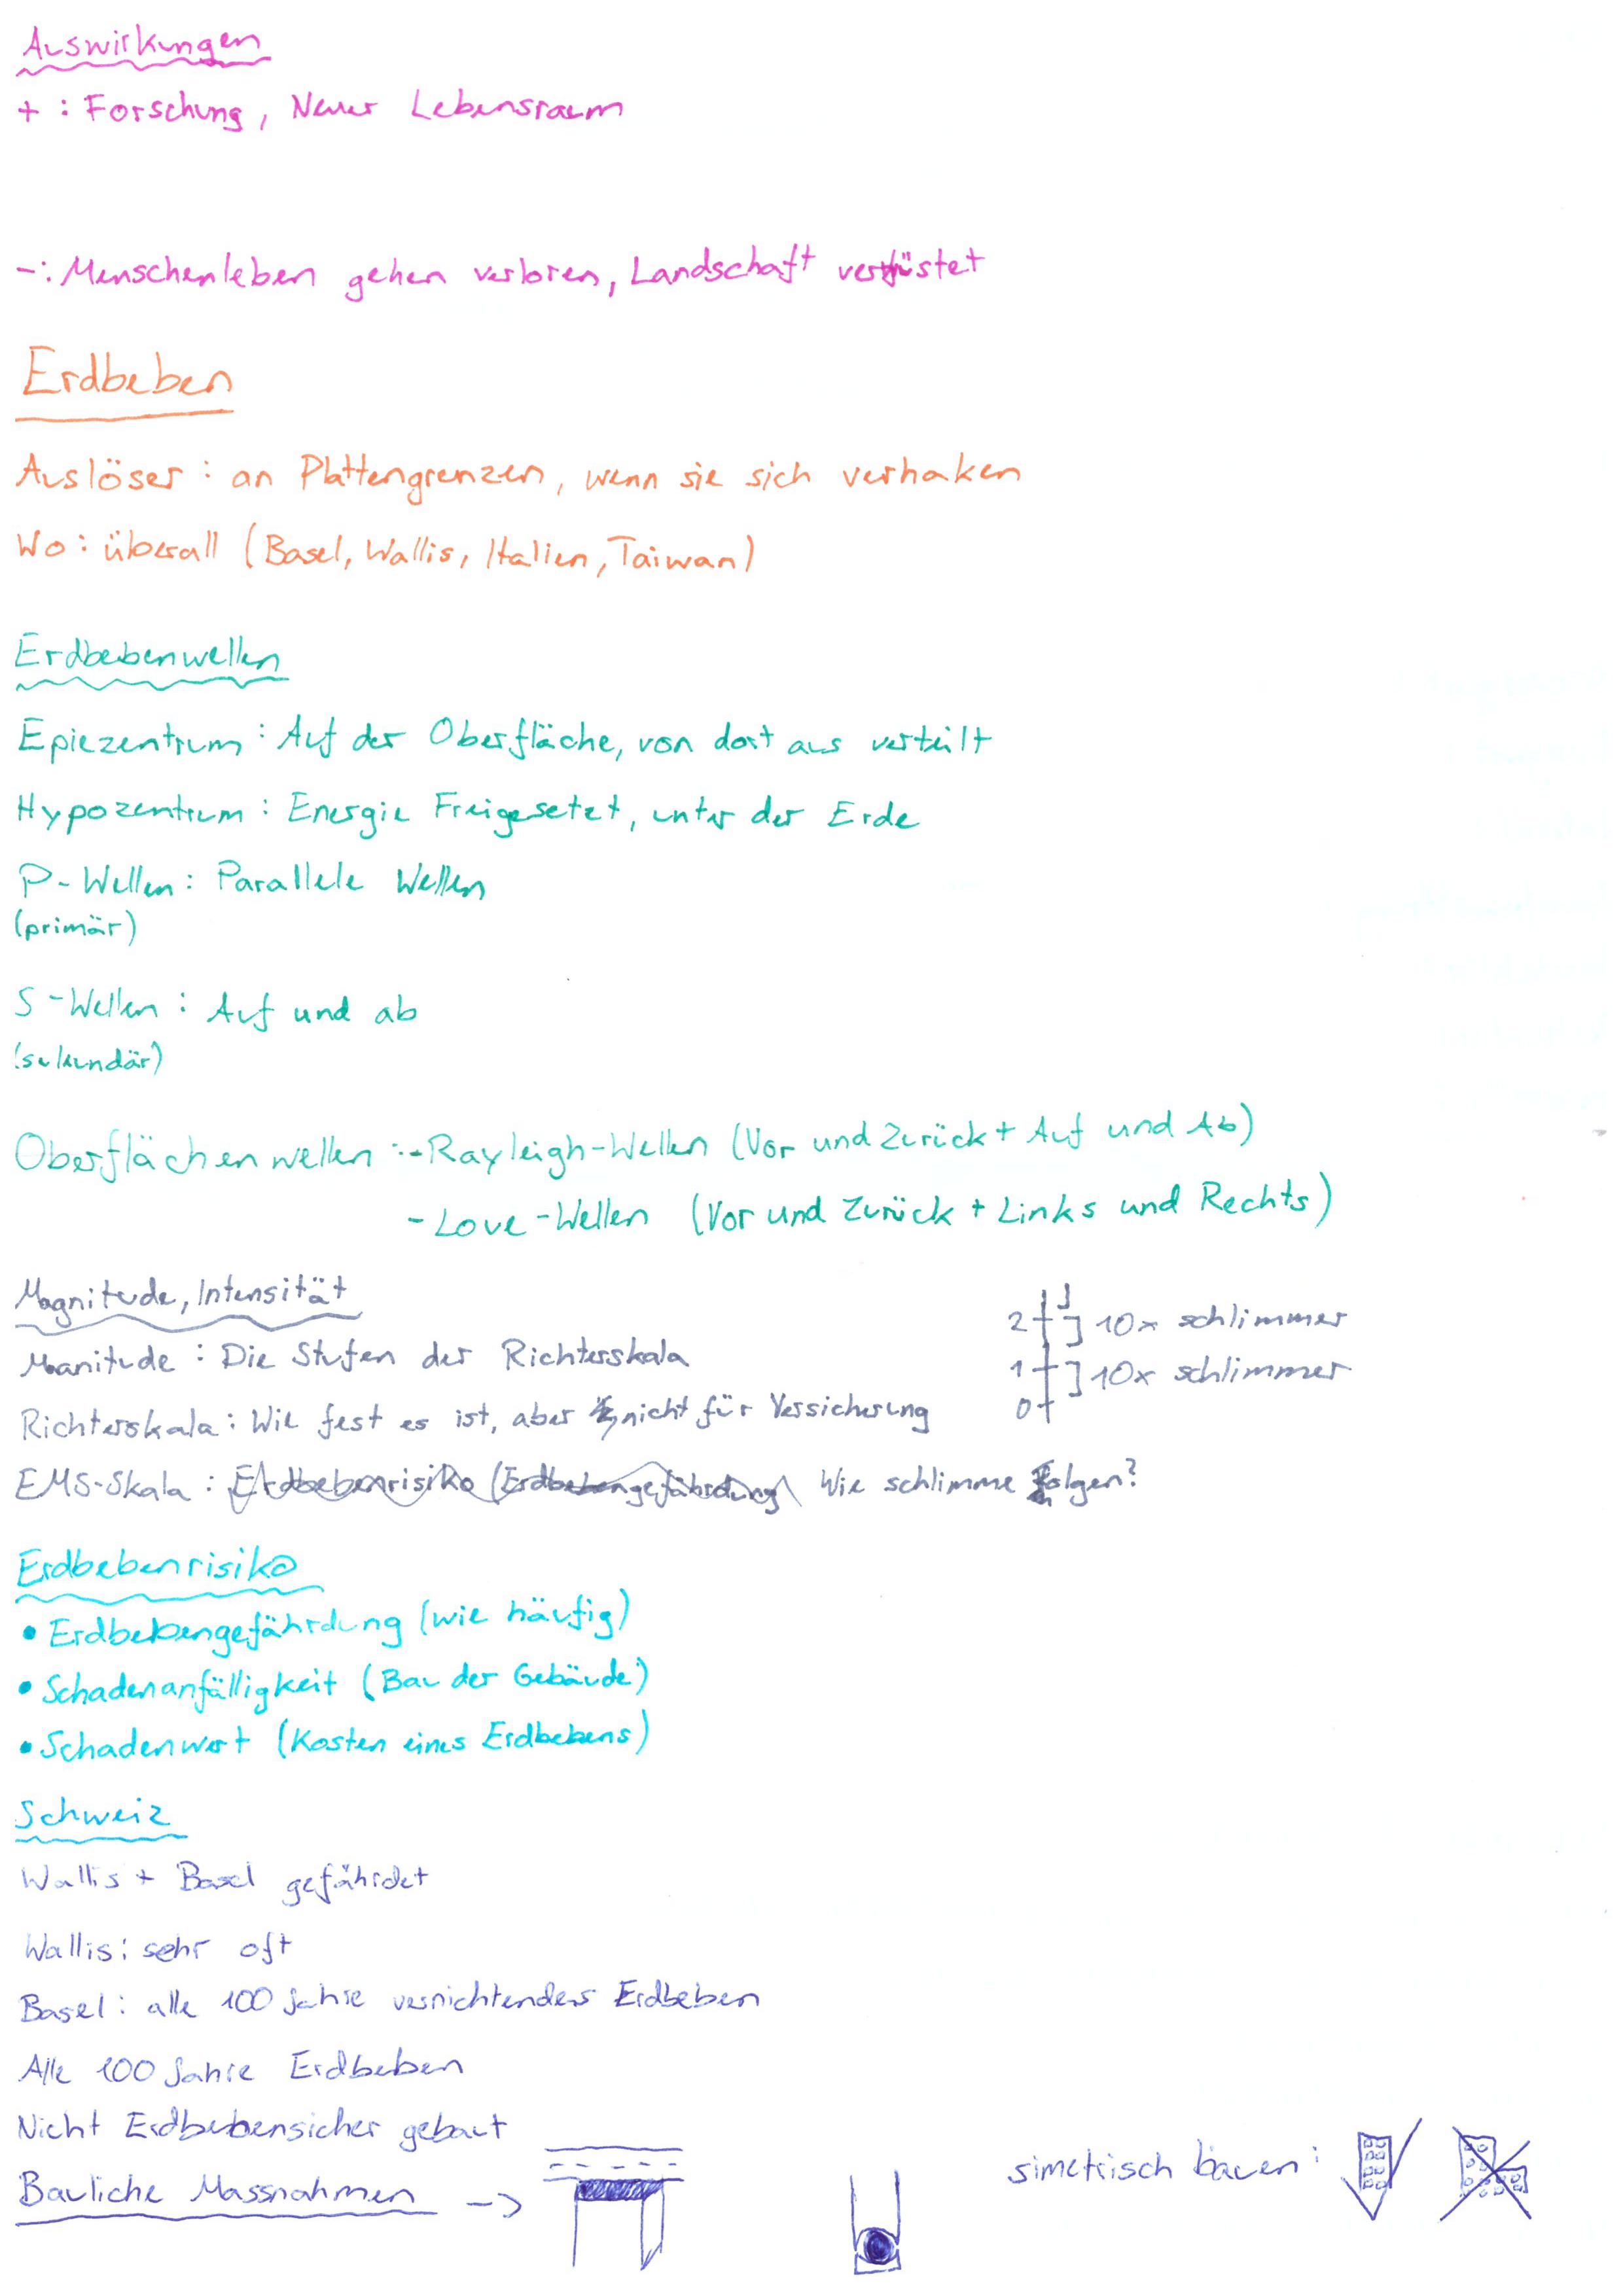 Auswirkungen
+ : Forschung, Neuer Lebensraum
-: Menschenleben gehen verloren, Landschaft verwüstet
Erdbeben
Auslöser : an Plattengrenzen, wenn sie sich verhaken
Wo: überall (Basel, Wallis, Italien, Taiwan)
Erdbebenwellen
Epiezentrum : Auf der Oberfläche, von dort aus verteilt
Hypozentrum : Energie Freigesetzt, unter der Erde
P-Wellen : Parallele Wellen
(primär)
S-Wellen : Auf und ab
(sekundär)
Oberflächenwellen :-Rayleigh-Wellen (Vor und Zurück + Auf und Ab)
-Love-Wellen (Vor und Zurück + Links und Rechts)
Magnitude, Intensität
2 10x schlimmer
Manitude : Die Stufen der Richterskala
1 10x schlimmer
0
Richterskala : Wie fest es ist, aber nicht für Versicherung
EMS-Skala : Erdbebenrisiko (Erdbebengefährdung) Wie schlimme Folgen?
Erdbebenrisiko
• Erdbebengefährdung (wie häufig)
• Schadenanfälligkeit (Bau der Gebäude)
• Schadenwert (Kosten eines Erdbebens)
Schweiz
Wallis + Basel gefährdet
Wallis: sehr oft
Basel: alle 100 Jahre vernichtendes Erdbeben
Alle 100 Jahre Erdbeben
Nicht Erdbebensicher gebaut
Bauliche Massnahmen ->
simetrisch bauen :